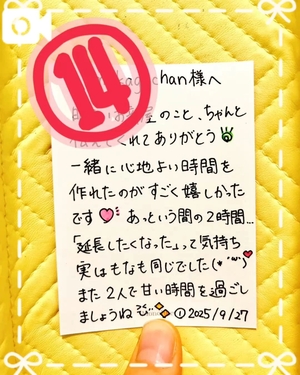 14
chan様へ
屋のこと、ちゃんと
くれてありがとう
一緒に心地よい時間を
作れたのがすごく嬉しかった
です あっという間の2時間…
「延長したくなった」って気持ち
実はもなも同じでした(*´ω`)
また2人で甘い時間を過ごし
ましょうね
① 2025/9/27